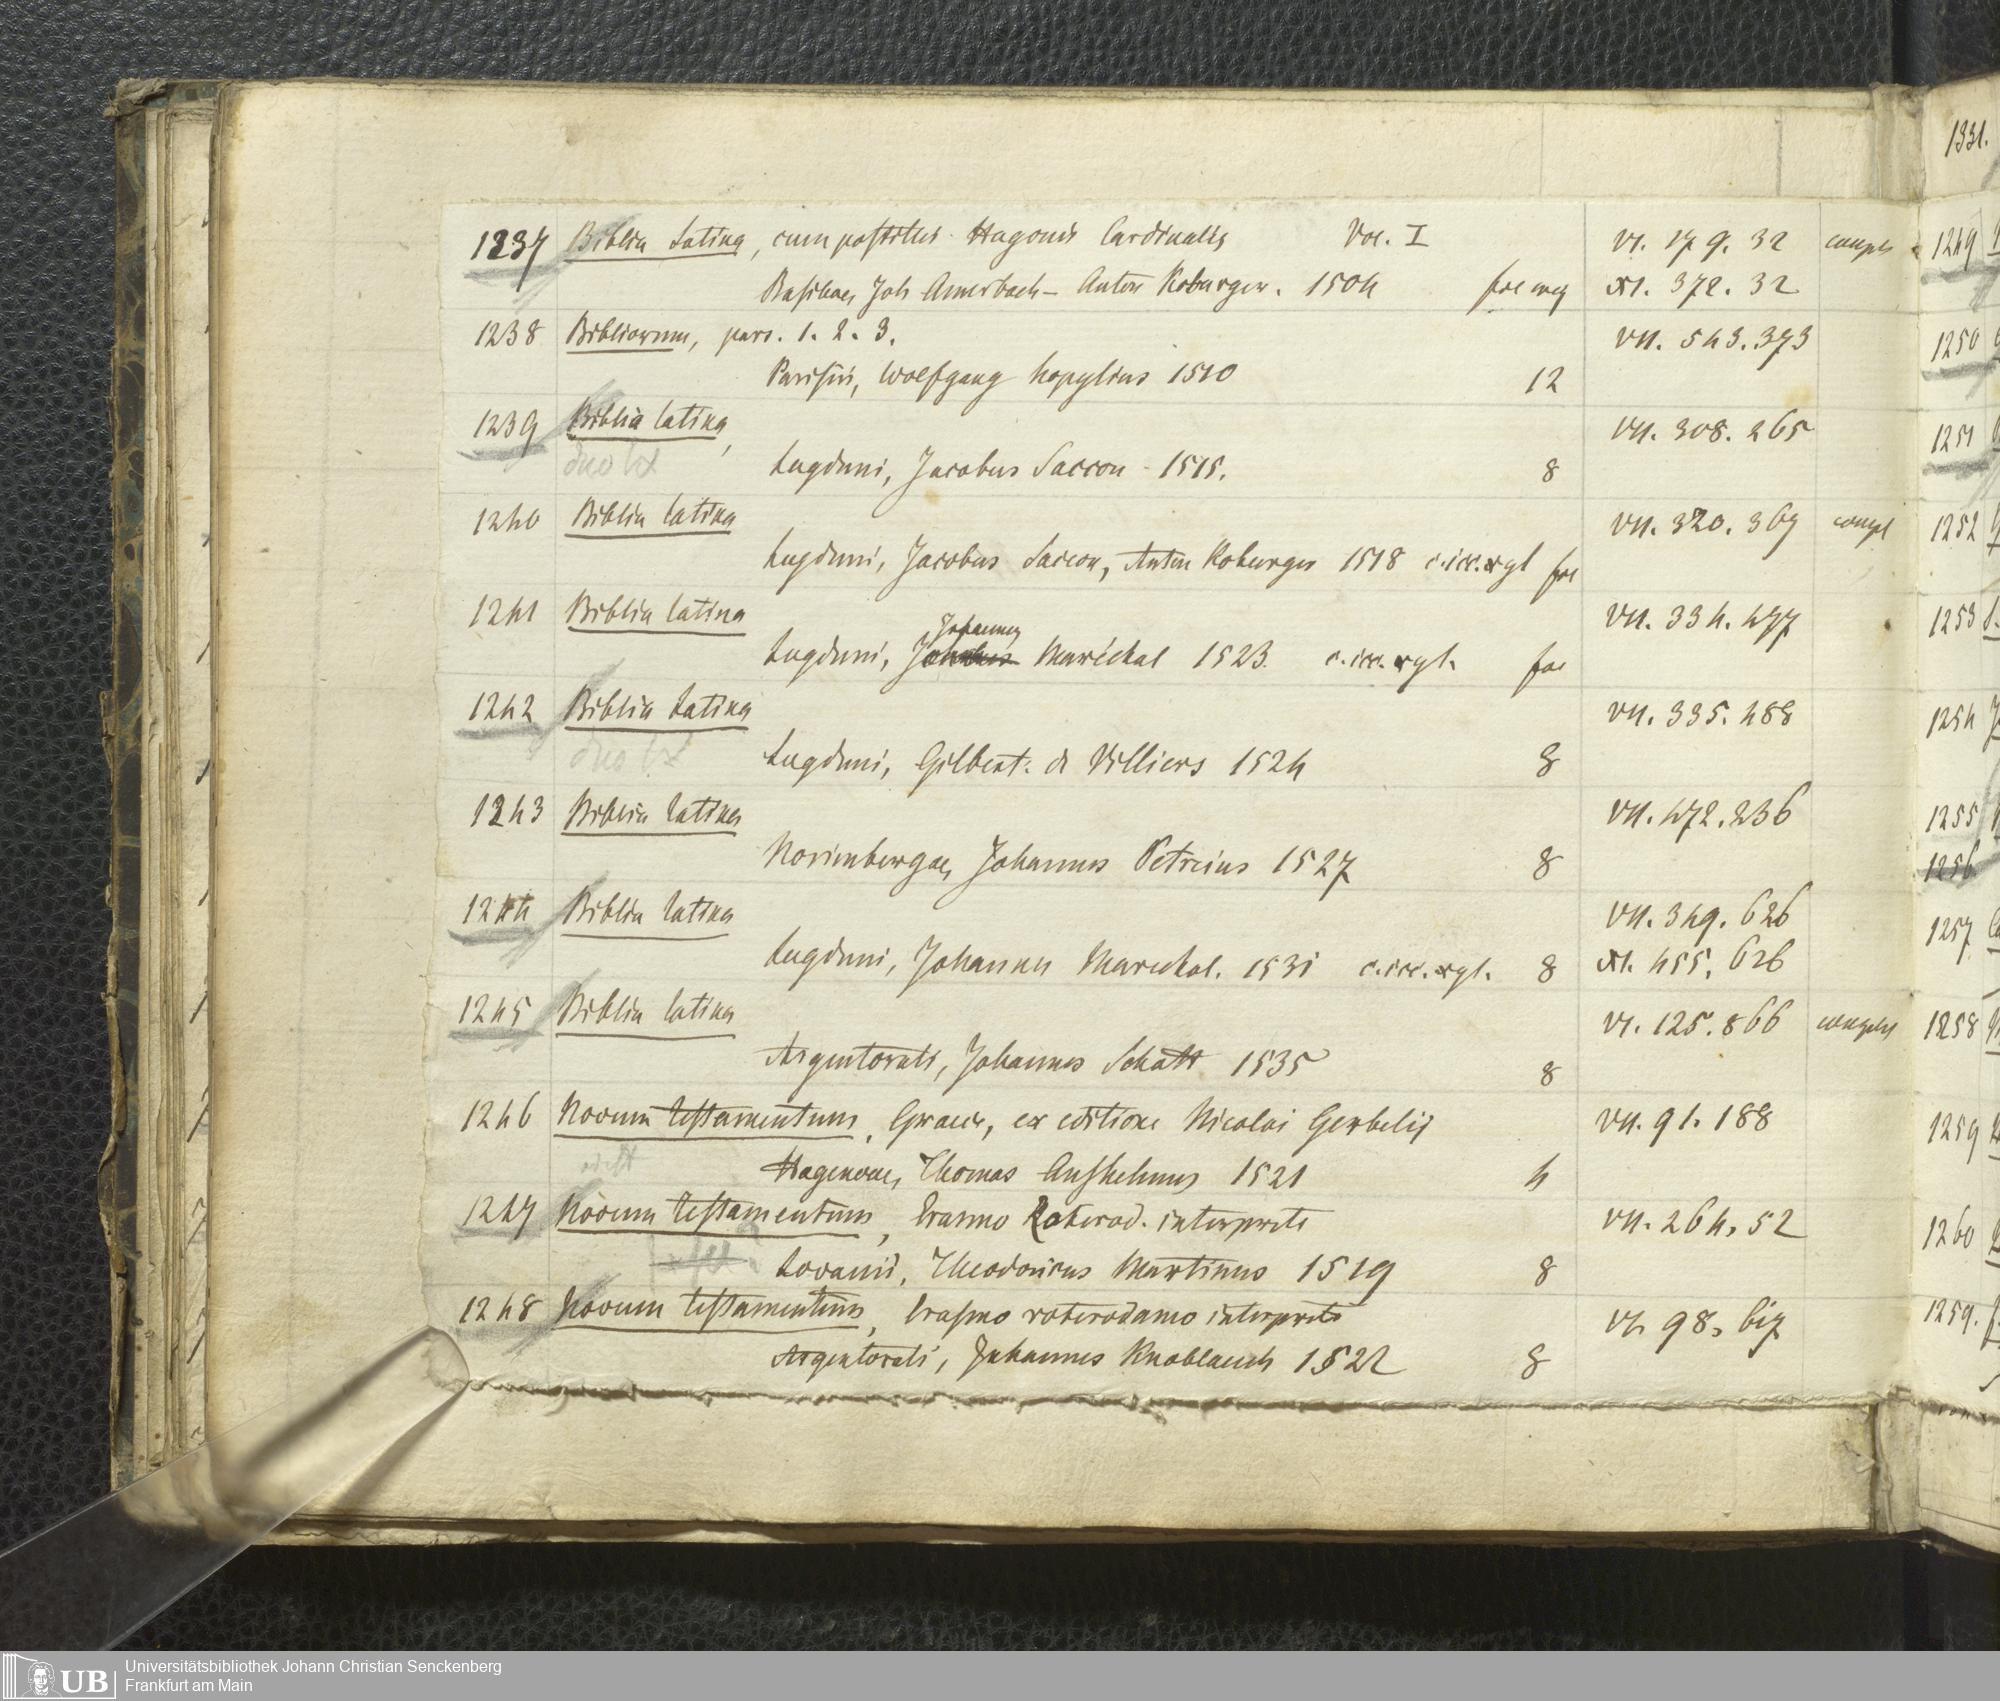 1237 Biblia Latina, cum postillis Hugonis Cardinalis Vol. I VI. 179. 32 compl
Basileae, Joh Amerbach – Anton Koburger. 1504 fol XI. 372. 32
1238 Bibliorum, pars. 1. 2. 3. VII. 543. 373
Parisiis, Wolfgang Hopylius 1510 12
1239 Biblia latina, VII. 308. 265
duo
Lugduni, Jacobus Saccon 1515. 8
1240 Biblia latina VII. 320. 369 compl
Lugduni, Jacobus Saccon, Anton Koburger 1518 c. icc. xyl fol
1241 Biblia latina VII. 334. 477
Johannes
Lugduni, Maréchal 1523. c. icc. xyl. fol
1242 Biblia Latina VII. 335. 488
duo
Lugduni, Gilbert. de Villiers 1524 8
1243 Biblia latina VII. 472. 236
Norimbergae, Johannes Petreius 1527 8
1244 Biblia latina VII. 349. 626
Lugduni, Johannes Mareschal. 1531 c. icc. xyl. 8 XI. 455. 626
1245 Biblia latina VI. 125. 866
Argentorati, Johannes Schott 1535 8
1246 Novum testamentum, Graece, ex editione Nicolai Gerbelij VII. 91. 188
Hagenoae, Thomas Anshelmus 1521 4
1247 Novum testamentum, Erasmo Roterod. interprete VII. 264. 52
Lovanii, Theodoricus Martinus 1519 8
1248 Novum testamentum, Erasmo roterodamo interprete VI. 98. 617
Argentorati, Johannes Knoblauch 1522 8
1331.
1249
1250
1251
1252
1253
1254
1255
1256
1257
1258
1259
1260
1259.
UB
Universitätsbibliothek Johann Christian Senckenberg
Frankfurt am Main